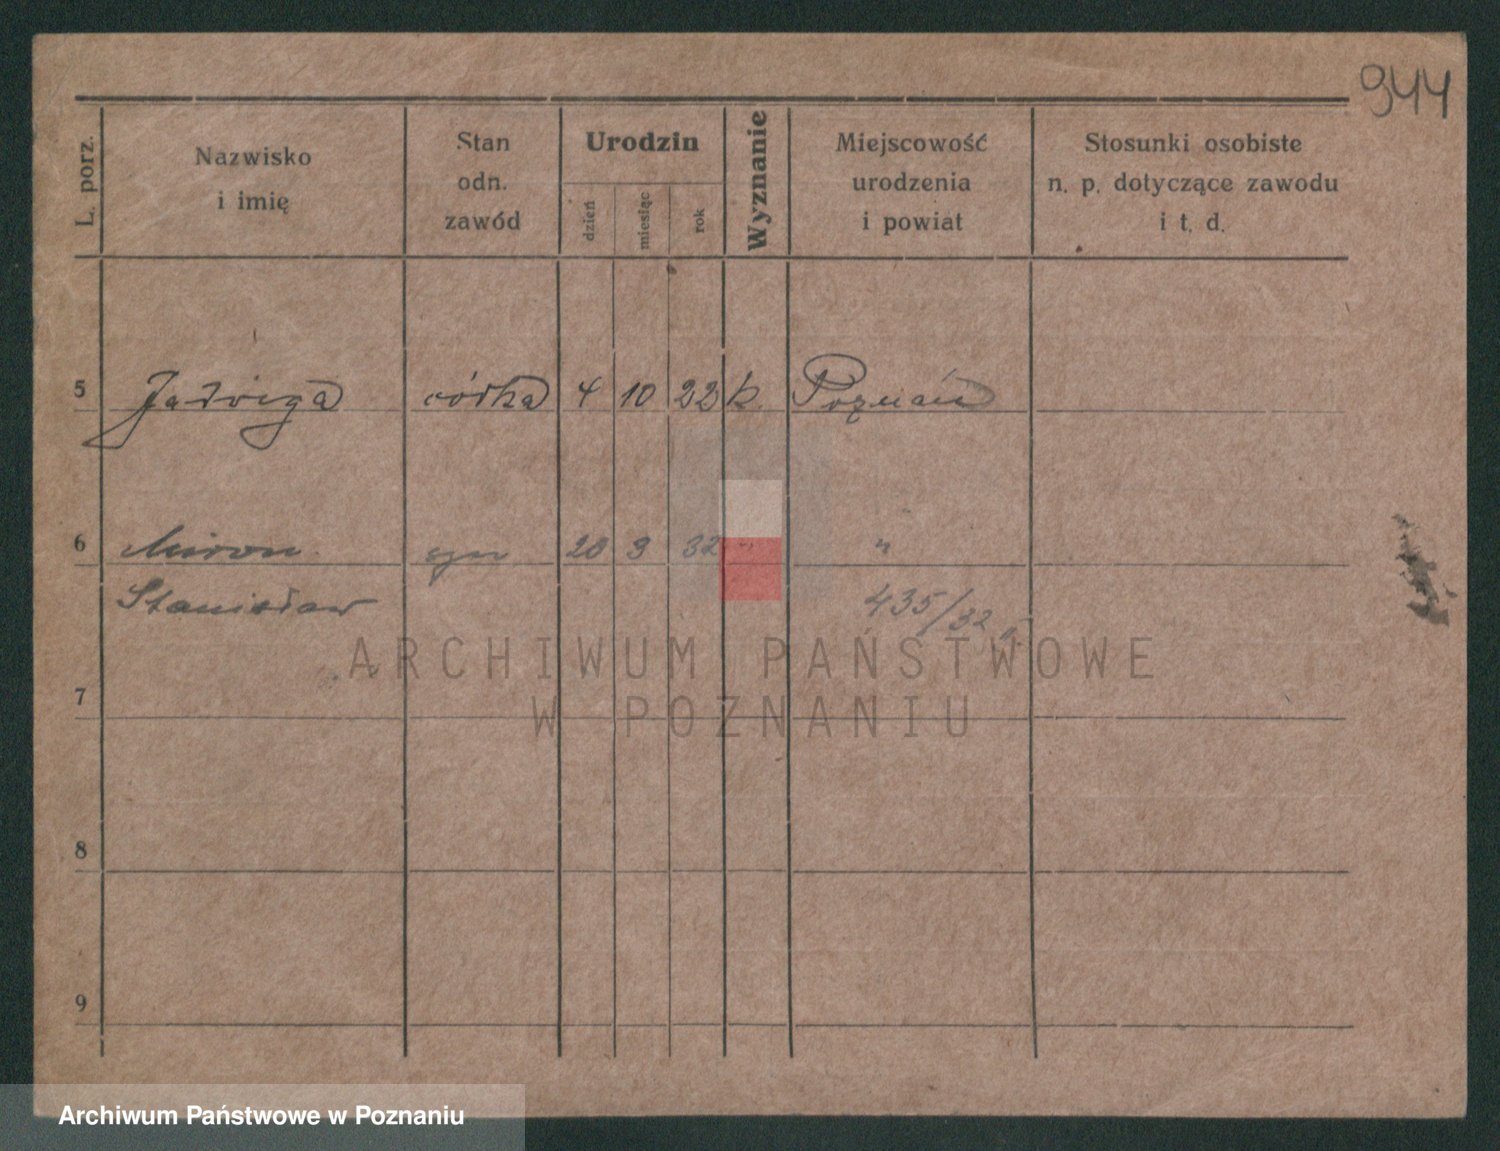 944
L. porz.
Nazwisko
i imię
Stan
odn.
zawód
Urodzin
dzień
miesiąc
rok
Wyznanie
Miejscowość
urodzenia
i powiat
Stosunki osobiste
n. p. dotyczące zawodu
i t. d.
5 Jadwiga córka 4 10 22 k. Poznań
6 Miron syn 20 9 32 " "
Stanisław 435/32
ARCHIWUM PAŃSTWOWE
7
W POZNANIU
8
9
Archiwum Państwowe w Poznaniu